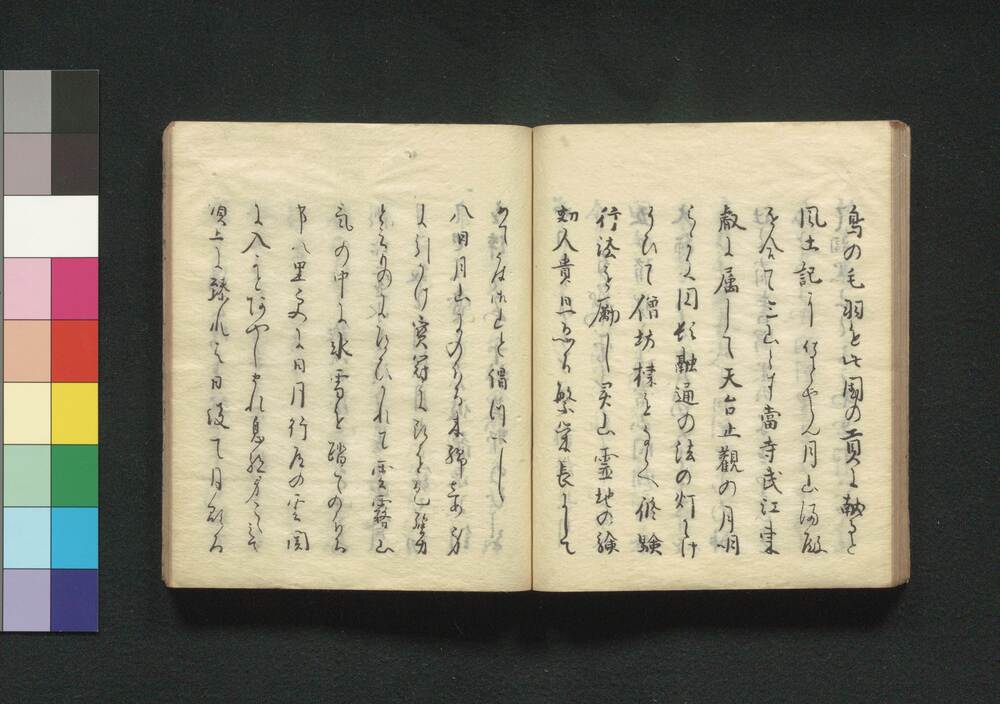 鳥の毛羽を此國の貢に献ると
風土記に侍とやらん月山湯殿
を合て三山とす當寺武江東
叡に属して天台止觀の月明
らかに円頓融通の法の灯かゝけ
そひて僧坊棟をならへ修驗
行法を勵し灵山霊地の驗
効人貴且恐る繁栄長にして
めて度御山と謂つへし
八日月山にのほる木綿しめ身
に引かけ宝冠に頭を包強力
と云ものに道ひかれて雲霧山
気の中に氷雪を踏てのほる
事八里更に日月行道の雲関
に入かとあやしまれ息絶身こゝえて
頂上に臻れは日没て月顕る